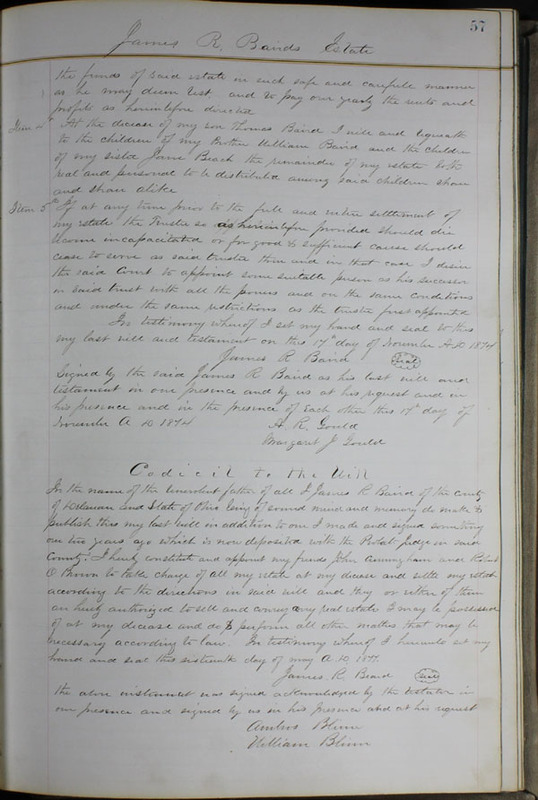 57
James R. Bairds Estate
the funds of said estate in such safe and carefull manner
as he may deem best and to pay over yearly the rents and
profits as hereinbefore directed
Item 4th At the decease of my son Thomas Baird I will and bequeath
to the children of my Brother William Baird and the children
of my sister Jane Beach the remainder of my estate both
real and personal to be distributed among said children share
and share alike
Item 5th If at any time prior to the full and entire settlement of
my estate the Trustee so as hereinbefore provided should die
become incapacitated or for good & sufficient cause should
cease to serve as said trustee then and in that case I desire
the said Court to appoint some suitable person as his successor
in said trust with all the powers and on the same conditions
and under the same restrictions as the trustee first appointed
In testimony whereof I set my hand and seal to this
my last will and testament on this 17th day of November A.D. 1874
James R Baird seal
Signed by the said James R Baird as his last will and
testament in our presence and by us at his request and in
his presence and in the presence of each other this 17th day of
November A D 1874
A. R. Gould
Margaret J Gould
Codicil to the Will
In the name of the benevolent father of all I James R Baird of the County
of Delaware and State of Ohio being of sound mind and memory do make &
publish this my last will in addition to one I made and signed something
over two years ago which is now deposited with the Probat judge in said
County. I hereby constitute and appoint my friends John Cunningham and Robert
Brown to take charge of all my estate at my decease and settle my estate
according to the directions in said will and they or either of them
are hereby authorized to sell and convey any real estate I may be possessed
of at my decease and do & perform all other matters that may be
necessary according to law. In testimony whereof I hereunto set my
hand and seal this sixteenth day of may A.D. 1877
James. R. Beard seal
the above instrument was signed acknowledged by the testator in
our presence and signed by us in his presence and at his request
Ambros Blinn
William Blinn